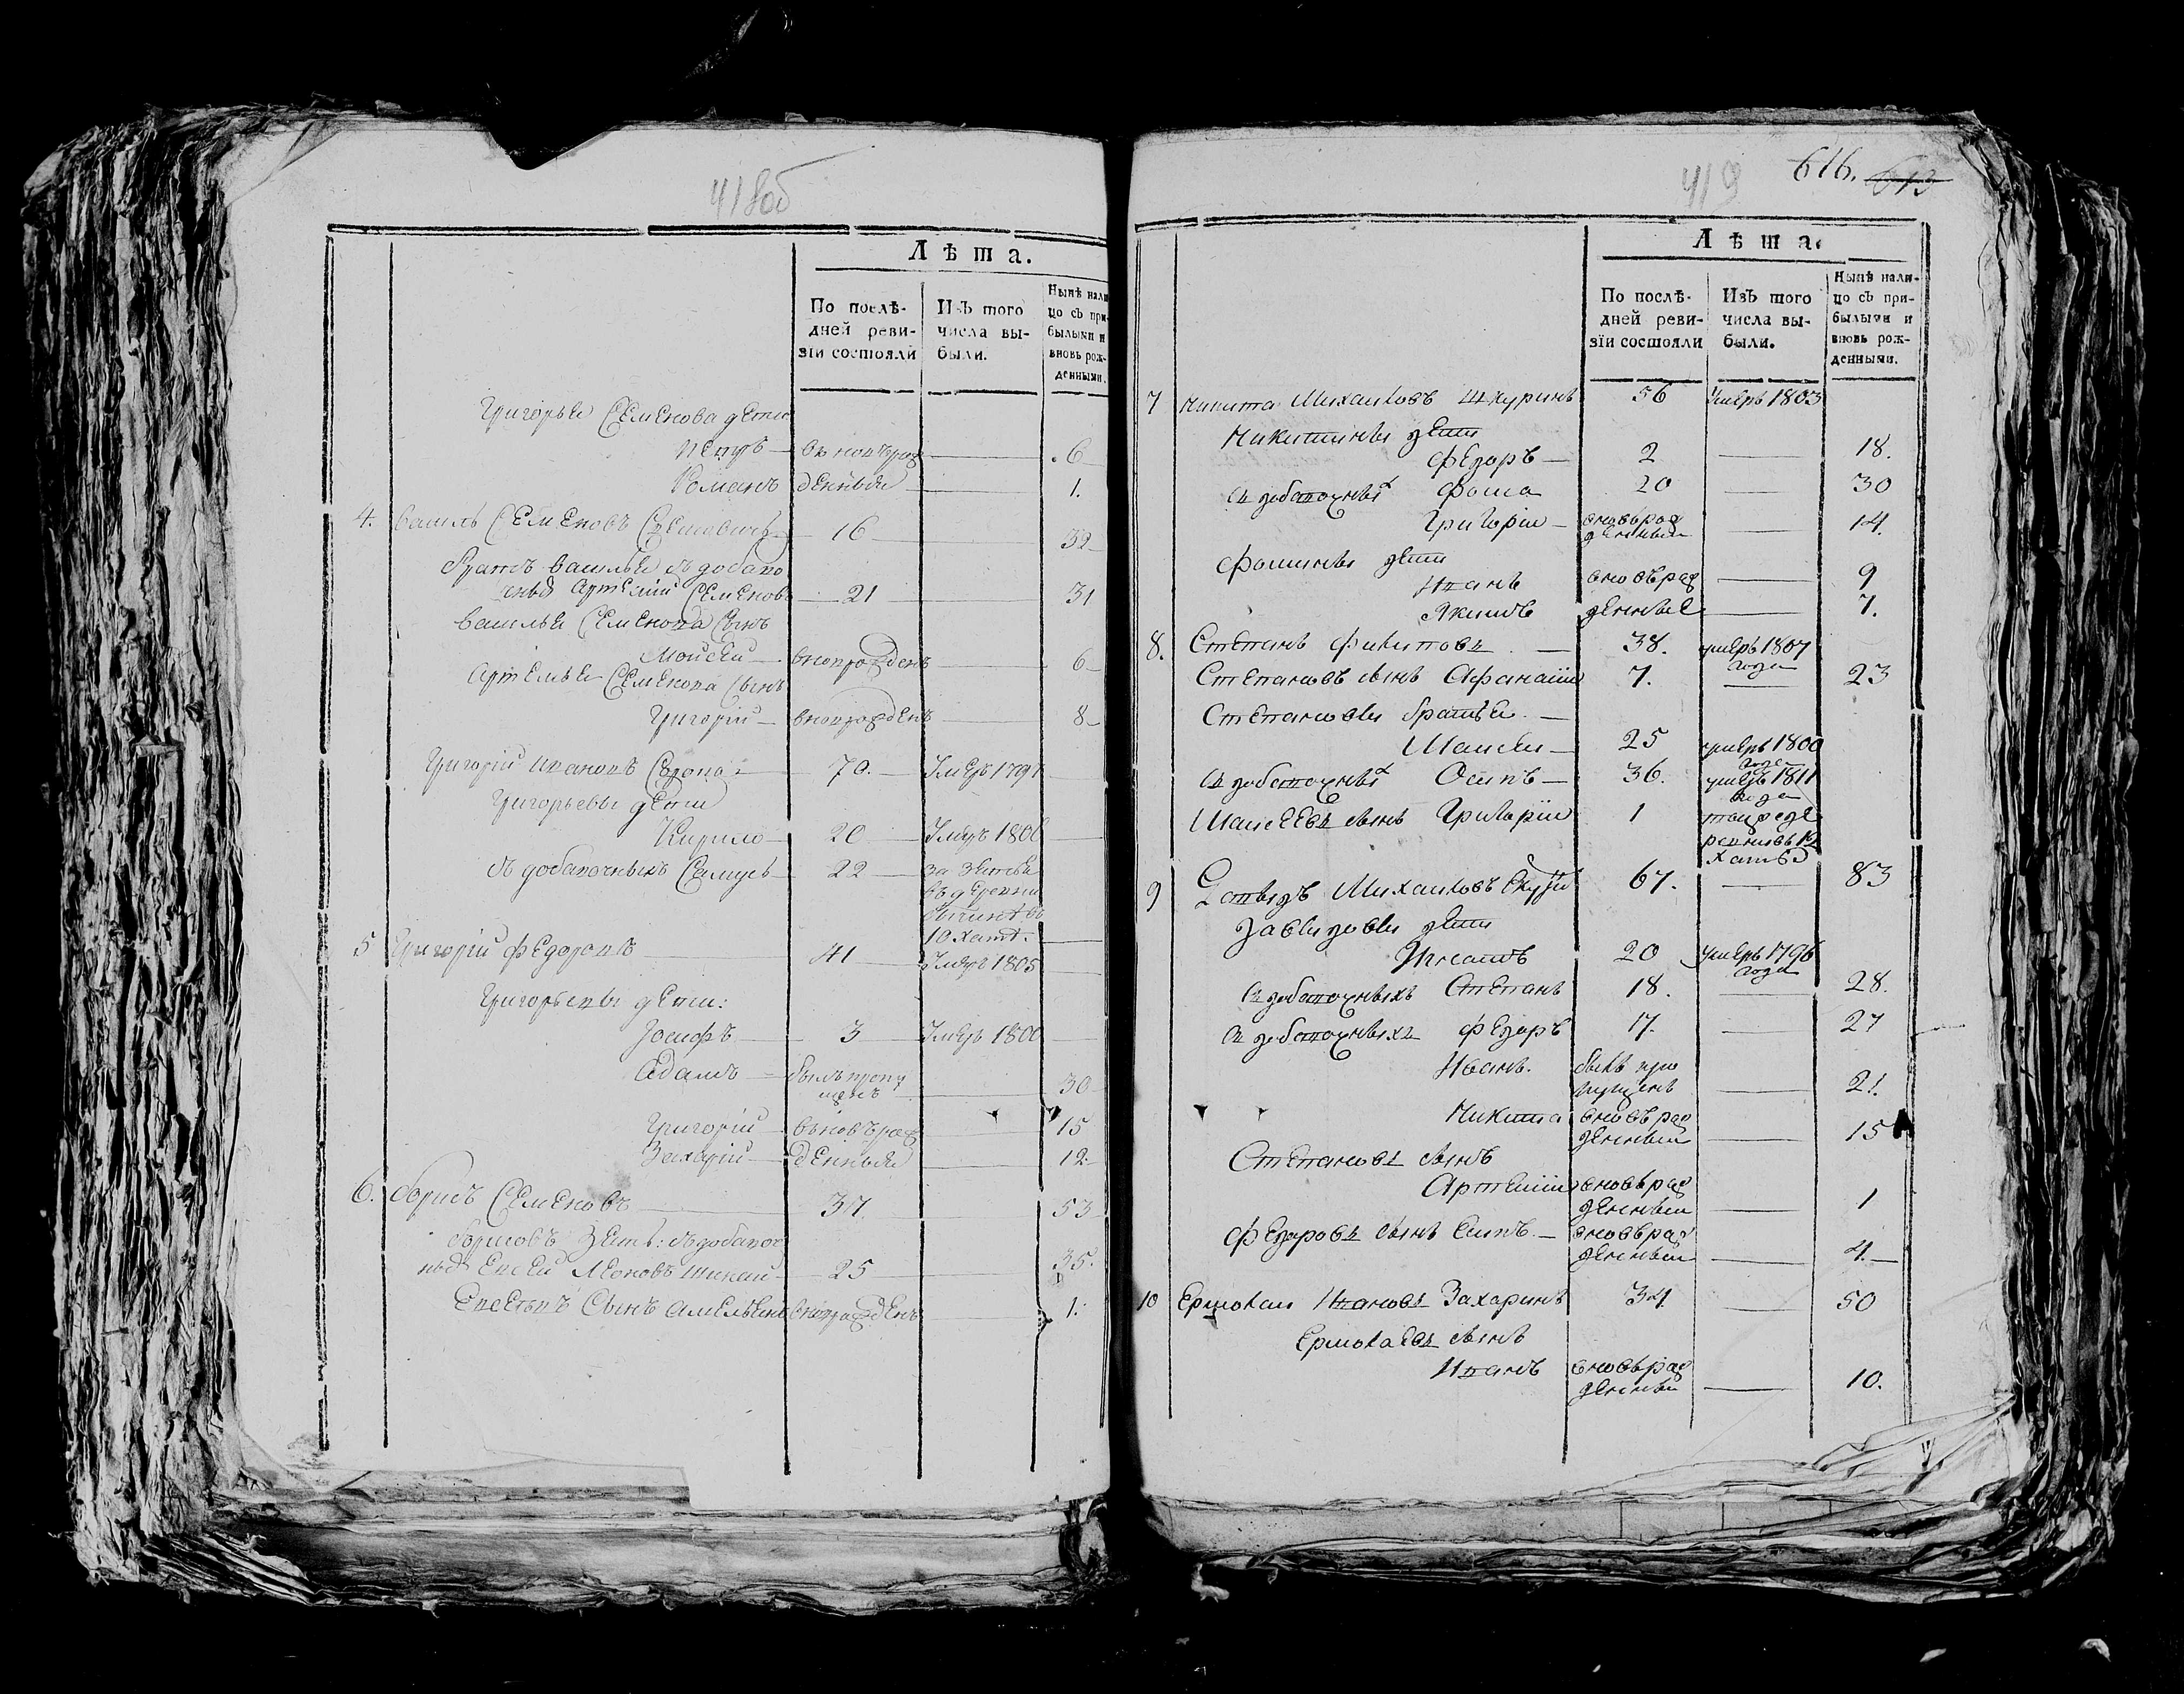 418об
Лѣта.
По послѣ-
дней реви-
зіи состояли
Изъ того
числа вы-
были.
Нынѣ нали
цо съ при-
былыми и
вновь рож-
денными.
Григорья Семенова дети
Петръ — вновьрож — 6
Романъ денныя — 1.
4. Василь Семеновъ — 16 — 32
братъ василья з добаво
чныхъ Артемій Семеновъ — 21 — 31
василья Семенова Сынъ
Мойсей — вноврожденъ — 6
Артемья Семенова Сынъ
Григорій — вноврожденъ — 8
Григорій Ивановъ — 70. — Умеръ 1797
Григорьевы дети
Кирило — 20 — Умеръ 1806
з добавочныхъ Самусь — 22 — за
въ деревни
10 хатѣ.
5 Григорій Федоровъ — 41 — Умеръ 1805
Григорьевы дети:
Іосифъ — 3 — Умеръ 1800
Адамъ — былъ пропу
щенъ — 30
Григорій вьновърож — 15
Захарій — денныя — 12
6. борисъ Семеновъ — 37. — 53
борисовъ Зеть: з добавоч
ныхъ Евсей Леоновъ — 25 — 35.
Евсеевъ Сынъ Амельянъ вноврожденъ — 1.
419 616. 613
Лѣта.
По послѣ-
дней реви-
зіи состояли
Изъ того
числа вы-
были.
Нынѣ нали-
цо съ при-
былыми и
вновь рож-
денными.
7 Никита Михаиловъ Шкуринъ 56 Умеръ 1803
Никитины дети
Федоръ — 2 — 18.
з добавочныхъ Фома 20 30
Григорій — вновьрож
денныи — 14.
Фомины дети
Иванъ вновърож — 9
Якимъ денные — 7.
8. Степанъ Филиповъ — 38. умеръ 1807
года
Степановъ сынъ Афанасіи 7. — 23
Степановы братья —
Маисеи — 25 умеръ 1800
года
з добавочныхъ Осипъ — 36. умеръ 1811
года
Маисеевъ сынъ Григоріи 1 тойже де
ревни въ 12
хатѣ
9 Михаиловъ 67. — 83
Завыдовы дети
Игнатъ 20 умеръ 1796
года
з добавочныхъ Степанъ 18. — 28.
з добавочныхъ Федоръ 17. — 27
Иванъ. былъ про
пущенъ — 21.
Никита вновърож
денныи — 15
Степановъ сынъ
Артеміи вновьрож
денныи — 1
Федоровъ сынъ Есипъ — вновьрож
денныи — 4.
10 Ермолаи Ивановъ Захаринъ 34 — 50
Ермолаевъ сынъ
Иванъ вновьрож
денныи — 10.